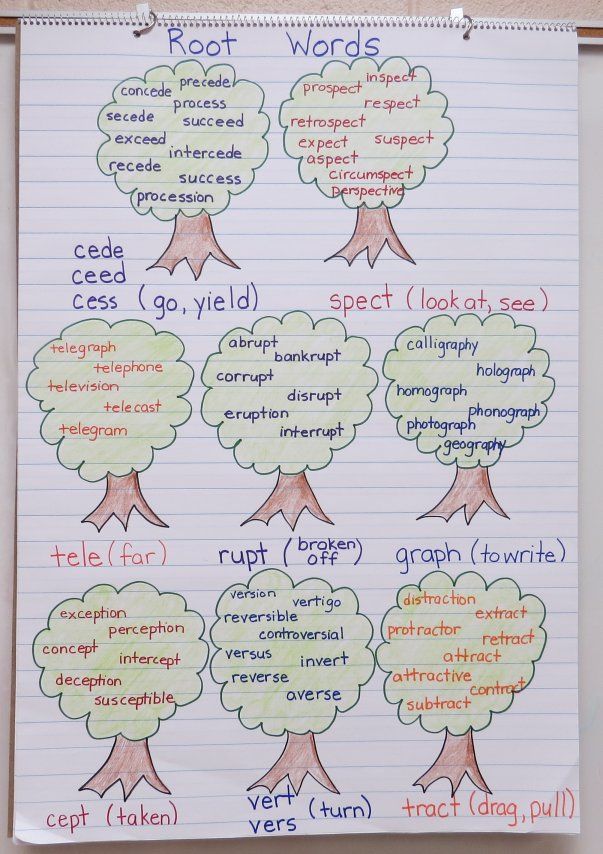 Root Words
concede
precede
process
secede
succeed
exceed
intercede
recede
success
procession
cede
ceed
cess (go, yield)
prospect
inspect
respect
retrospect
expect
suspect
aspect
circumspect
perspective
spect (look at, see)
telegraph
telephone
television
telecast
telegram
tele (far)
abrupt
bankrupt
corrupt
disrupt
eruption
interrupt
rupt (broken off)
calligraphy
holograph
homograph
phonograph
photograph
geography
graph (to write)
exception
perception
concept
intercept
deception
susceptible
cept (taken)
version
vertigo
reversible
controversial
versus
invert
reverse
averse
vert
vers (turn)
distraction
extract
protractor
retract
attract
attractive
contract
subtract
tract (drag, pull)